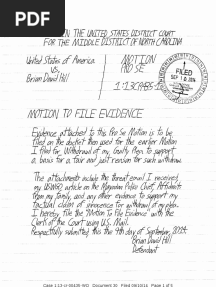 PDF
IN THE UNITED STATES DISTRICT COURT
FOR THE MIDDLE DISTRICT OF NORTH CAROLINA
United States of America
vs.
Brian David Hill
MOTION
PRO SE
1:13CR435-1
FILED
SEP 10 2014
MOTION TO FILE EVIDENCE
Evidence attached to this Pro Se Motion is to be
filed on the docket then used for the earlier Motion
I filed for Withdrawal of my Guilty Plea, to support
a basis for a fair and just reason for such withdrawal.
The attachments include the threat email I received,
my USWGO article on the Mayodan Police Chief, Affidavits
from my family, and any other evidence to support my
factual claim of innocence for withdrawal of my plea.
I hereby file the "Motion To File Evidence" with the
Clerk of the Court using U.S. Mail.
Respectfully submitted this the 9th day of September, 2014.
Brian David Hill
Defendant
Case 1:13-cr-00435-WO Document 30 Filed 09/10/14 Page 1 of 5